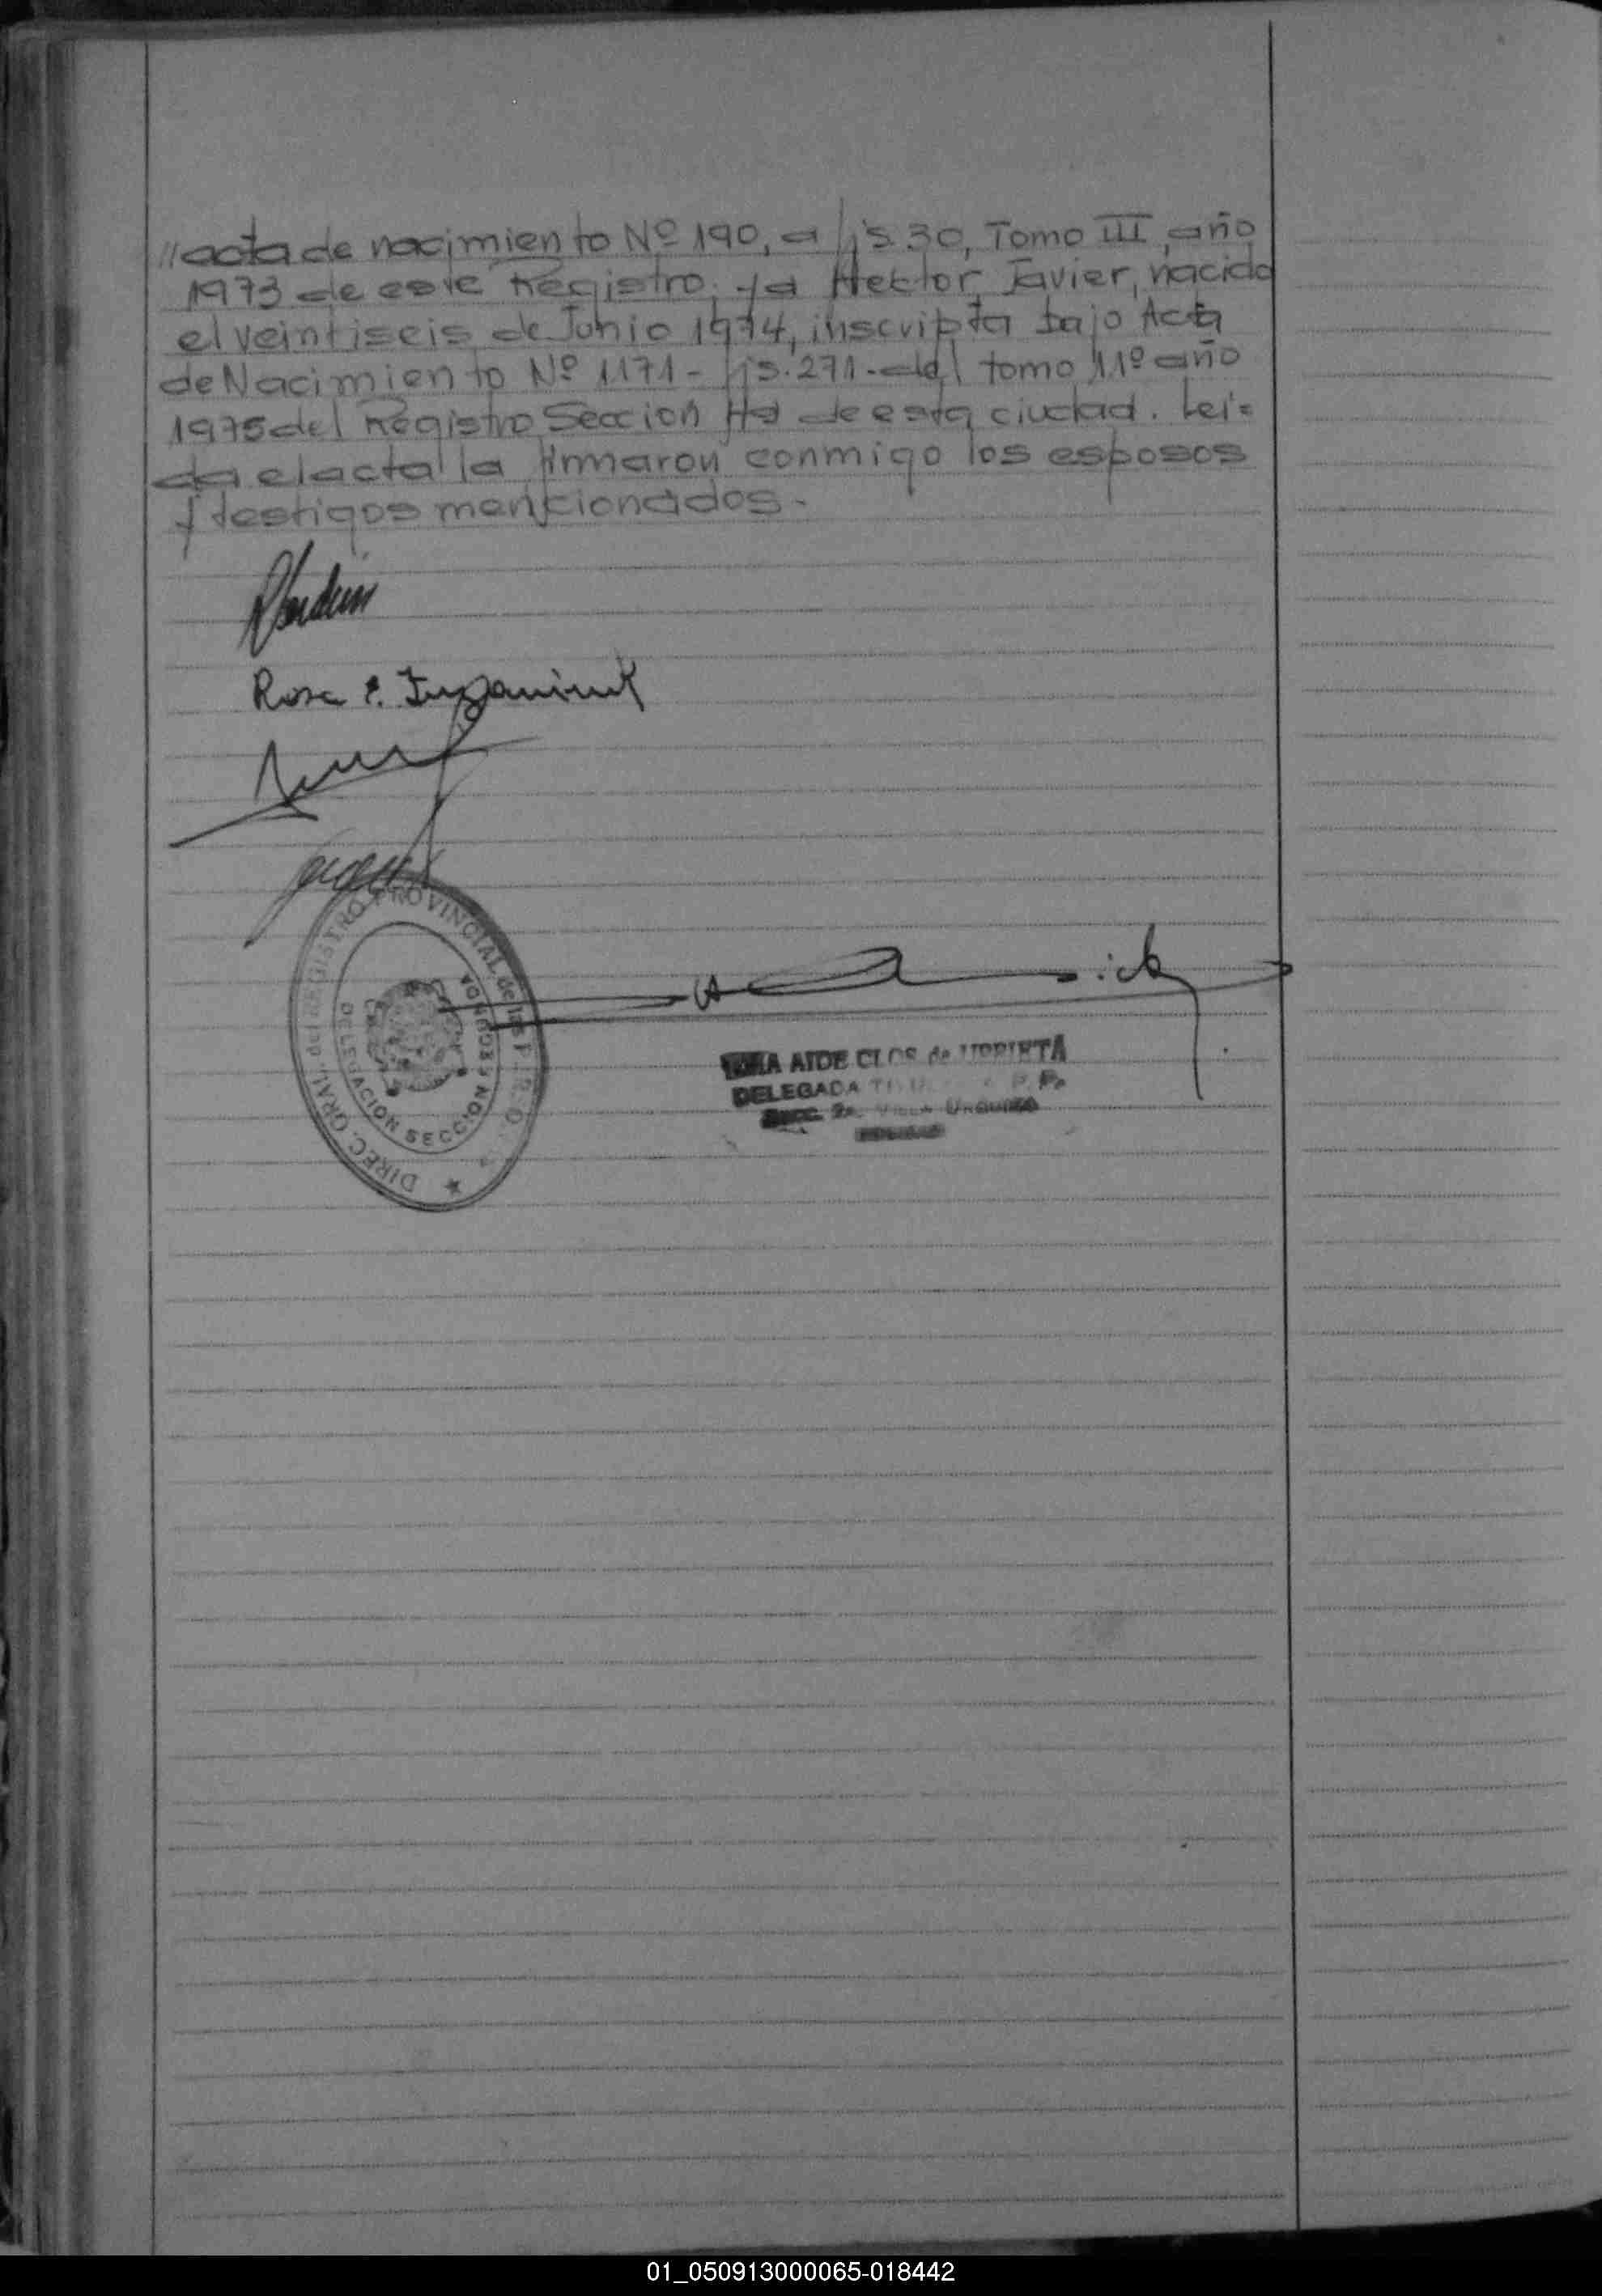 //acta de nacimiento Nº 190, a fjs. 30, Tomo III, año
1973 de este Registro; ya Hector Javier, nacido
el veintiseis de Junio 1974, inscripta bajo Acta
de Nacimiento Nº 1171 - fjs. 271 - del tomo 11º año
1975 del Registro Seccion de esta ciudad. Lei=
da el acta la firmaron conmigo los esposos
y testigos mencionados.-
Rosa
DIREC. GRAL. del REGISTRO PROVINCIAL de las P
DELEGACION SECCION SEGUNDA
AIDE CLOS de URRIETA
DELEGADA
Secc. 2a. VILLA URQUIZA
01_050913000065-018442